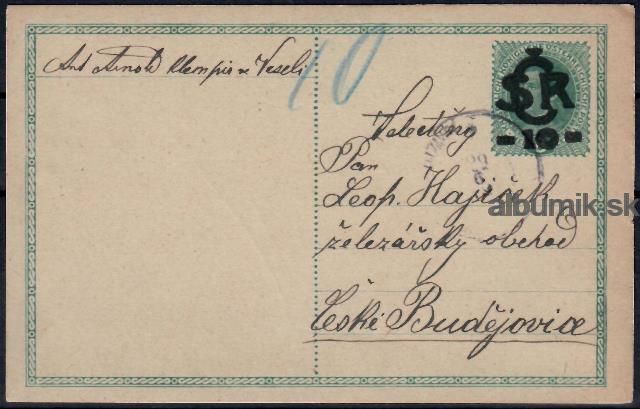 Ant Arnošt Klempír ve Veselí
10
ČSR
- 10 -
Velectěný
Pan
Leop. Hajíček
železářský obchod
České Budějovice
albumik.sk